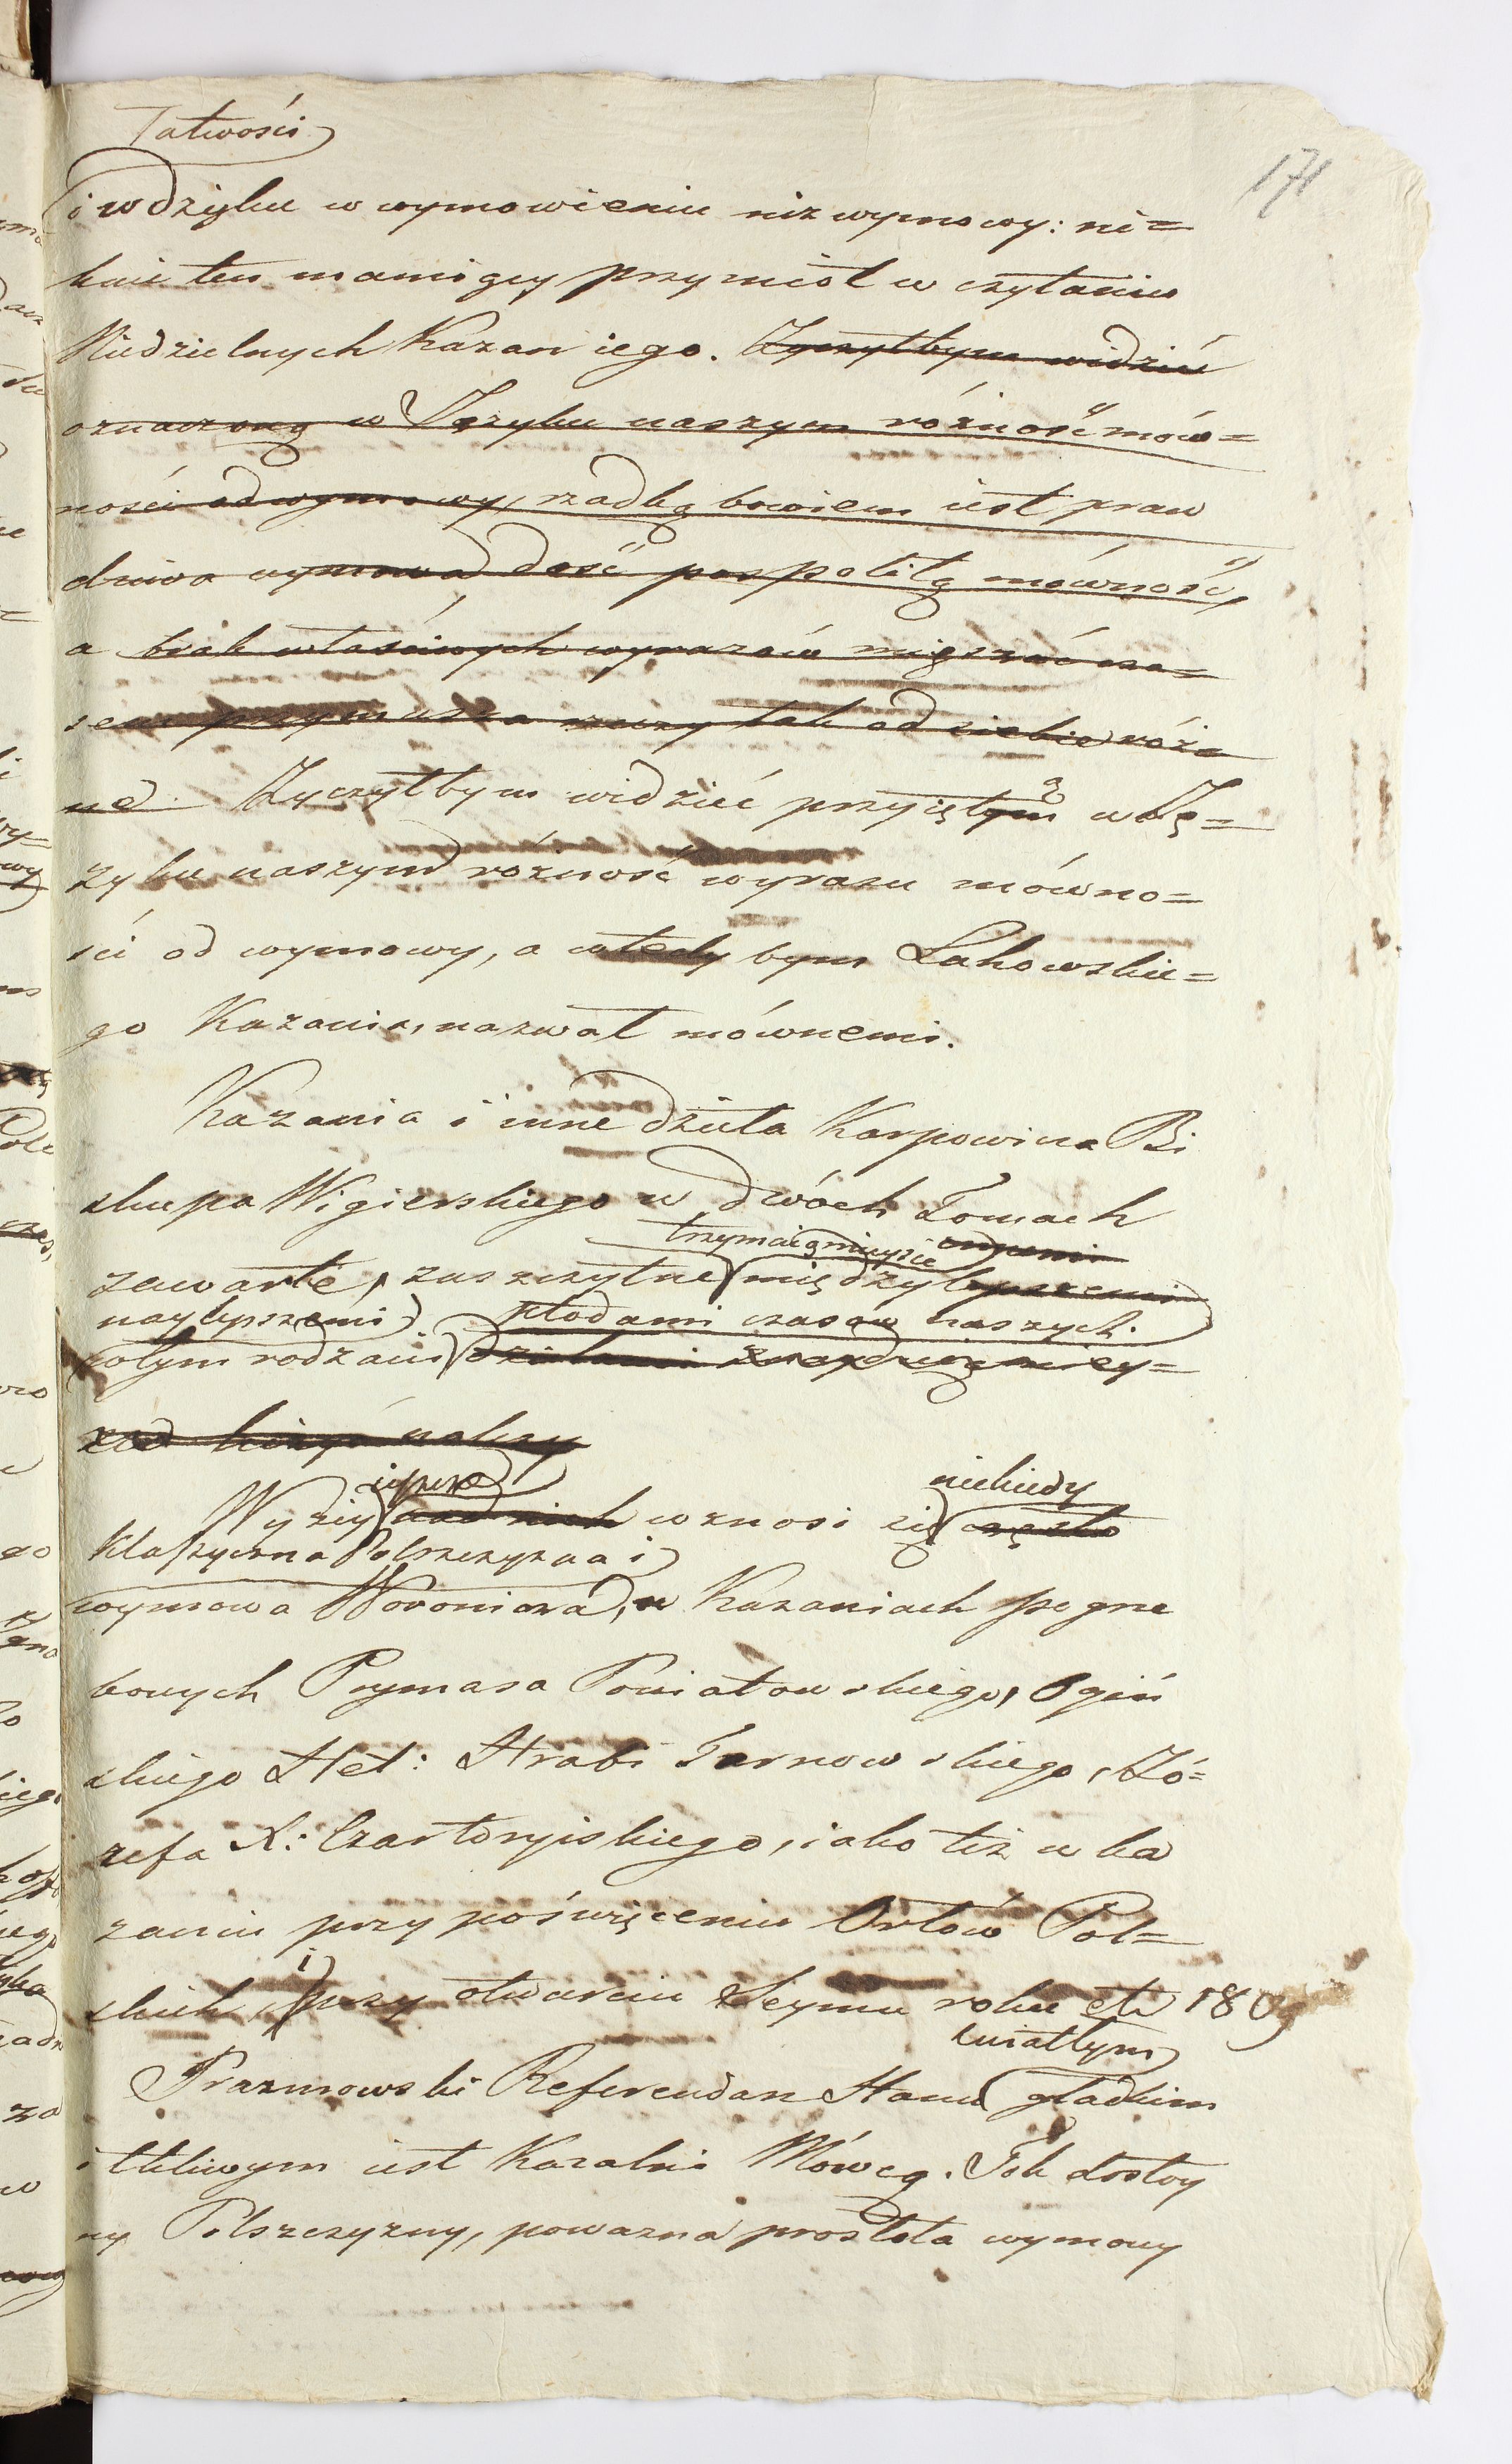 łatwości
171
i wdzięku w wymowieniu niz wymowy: ni=
knie ten mamiący przymiot w czytaniu
Niedzielnych Kazan iego. Zyczyłbym widzieć
oznaczoną w Języku naszym różność mów=
ności od wymowy, rzadką bowiem iest praw
dziwa wymowa dość pospolitą mówność,
a brak właściwych wyrazów mięszać cza=
sem przymusza rzeczy tak od siebie róż
ne. Zyczyłbym widzieć przyiętą w Ję=
zyku naszym różność wyrazu mówno=
ści od wymowy, a wtedy bym Lachowskie=
go Kazania, nazwał mównemi.
Kazania i inne dzieła Karpowicza Bi
skupa Wigierskiego w dwóch Tomach
trzymaią mieysce
zawarte, zaszczytne między lepszemi
naylepszemi płodami czasów naszych.
w tym rodzaiu dziełami znayduią miey=
sce
Wyżey ieszcze wznosi się niekiedy często
klassyczna Polszczyzna i
wymowa Woronicza, w Kazaniach pogrze
bowych Prymasa Poniatowskiego, Ogiń
skiego Het: Hrabi Tarnowskiego, Jó=
zefa X: Czartoryiskiego, iako też w ka
zaniu przy poświęceniu Orłów Pol=
skich, i przy otwarciu Seymu roku 1809
światłym
Prazmowski Referendarz Stanu gładkim
i tkliwym iest Kazalnie Mówcą. Tok dostoy
ny Polszczyzny, powazna prostota wymowy